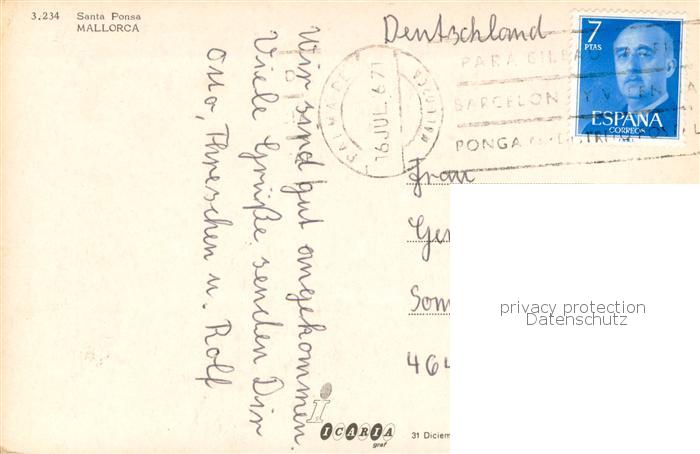 3.234 Santa Ponsa
MALLORCA
Deutschland
7
PTAS
ESPAÑA
CORREOS
PALMA DE MALLORCA
16 JUL
PARA
BARCELON
PONGA
Wir sind gut angekommen.
Viele Grüße senden Dir
Otto, Threschen u. Rolf
Frau
Ger
Som
464
privacy protection
Datenschutz
ICARIA
graf
31 Diciem